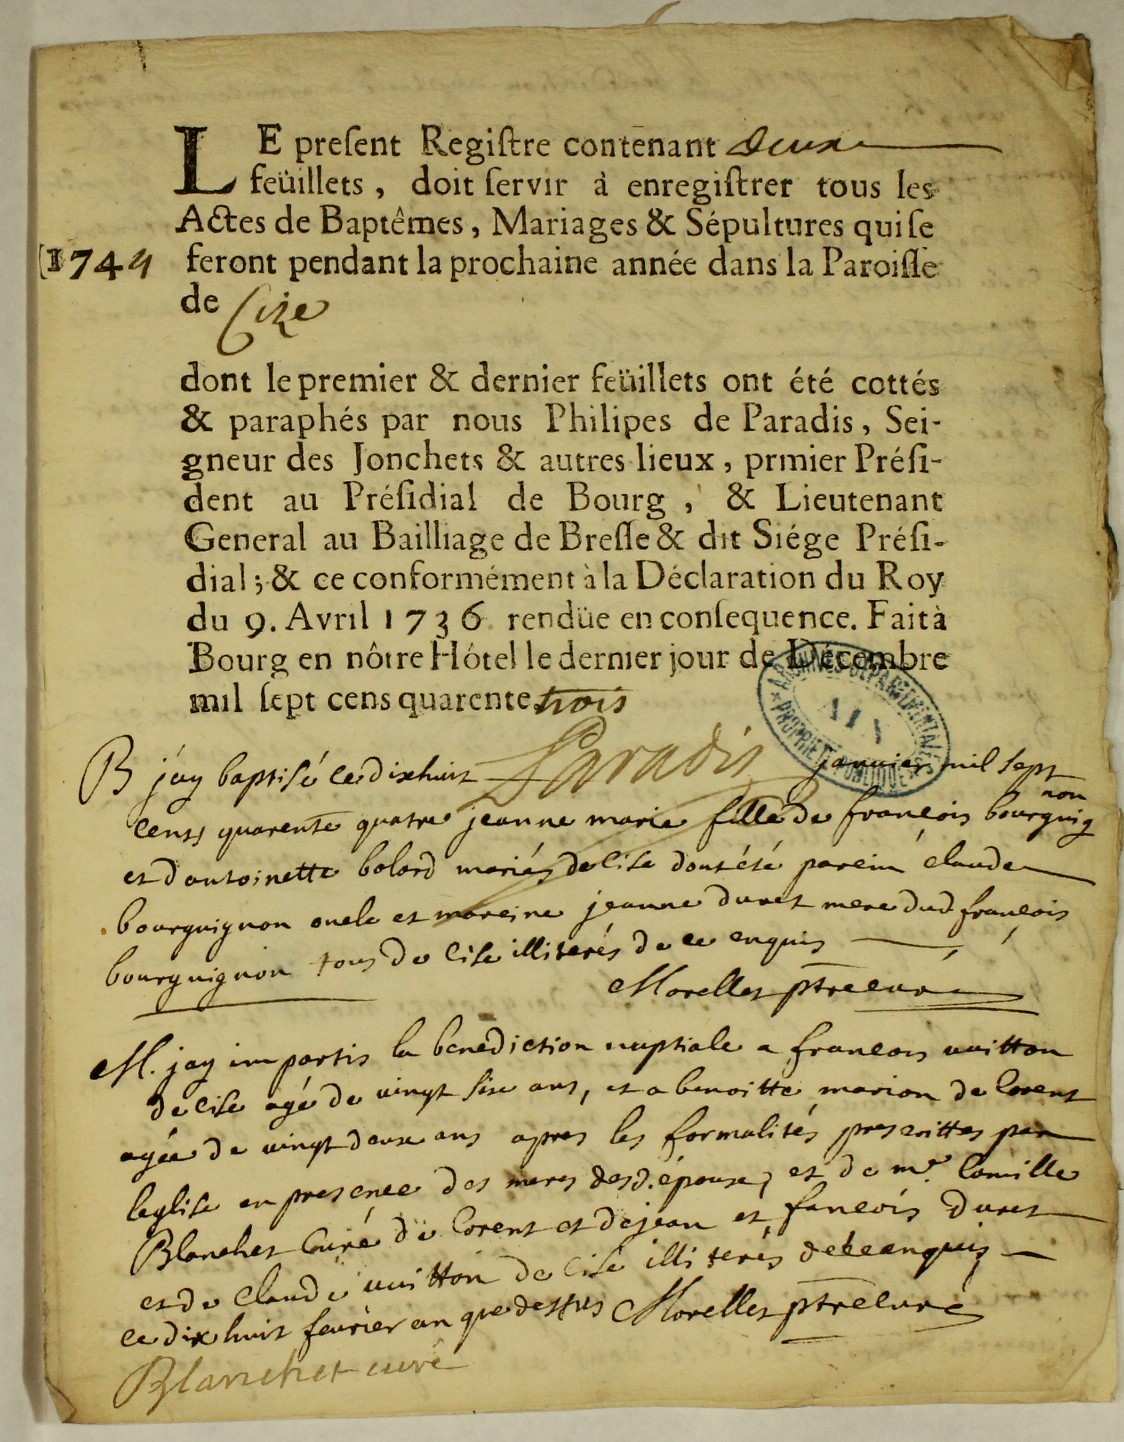 LE preſent Regiſtre contenant deux
feüillets, doit ſervir à enregiſtrer tous les
Actes de Baptêmes, Mariages & Sépultures qui ſe
1744 feront pendant la prochaine année dans la Paroiſſe
de Cize
dont le premier & dernier feüillets ont été cottés
& paraphés par nous Philipes de Paradis, Sei-
gneur des Jonchets & autres lieux, prmier Préſi-
dent au Préſidial de Bourg, & Lieutenant
General au Bailliage de Breſſe & dit Siége Préſi-
dial; & ce conformément à la Déclaration du Roy
du 9. Avril 1736 rendüe en conſequence. Fait à
Bourg en nôtre Hótel le dernier jour de Décembre
mil ſept cens quarente trois
ARCHIVES DEPARTEMENTALES PROPRIETE PUBLIQUE
Paradis
B jay baptisé ce dixhuit janvier mil sept
cents quarente quatre jeanne marie fille de françois bourguignon
et dantoinette bolard mariés de cise dont été parein claude
bourguignon oncle et mareine jeanne duret mere dud françois
bourguignon tous de cise illiterés de ce enquis
Morellet ptre curé
M. jay imparti la benediction nuptiale a francois vuitton
de cise agé de vingt six ans, et a benoitte marion de Corent
agée de vingt deux ans apres les formalités prescrittes par
leglise en presence des meres desd. époux, et de mr. Camille
Blanchet Curé de Corent et de jean et fancois duret
et de claude vuitton de cise illiterés de ce enquis
ce dix huit fevrier an que dessus Morellet ptre curé
Blanchet curé